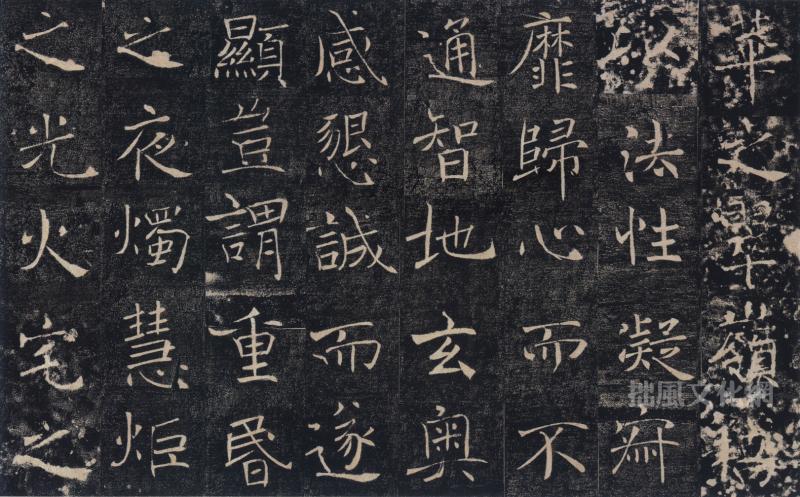 華之翠嶺竊
以法性凝寂
靡歸心而不
通智地玄奧
感懇誠而遂
顯豈謂重昏
之夜燭慧炬
之光火宅之
拙風文化網